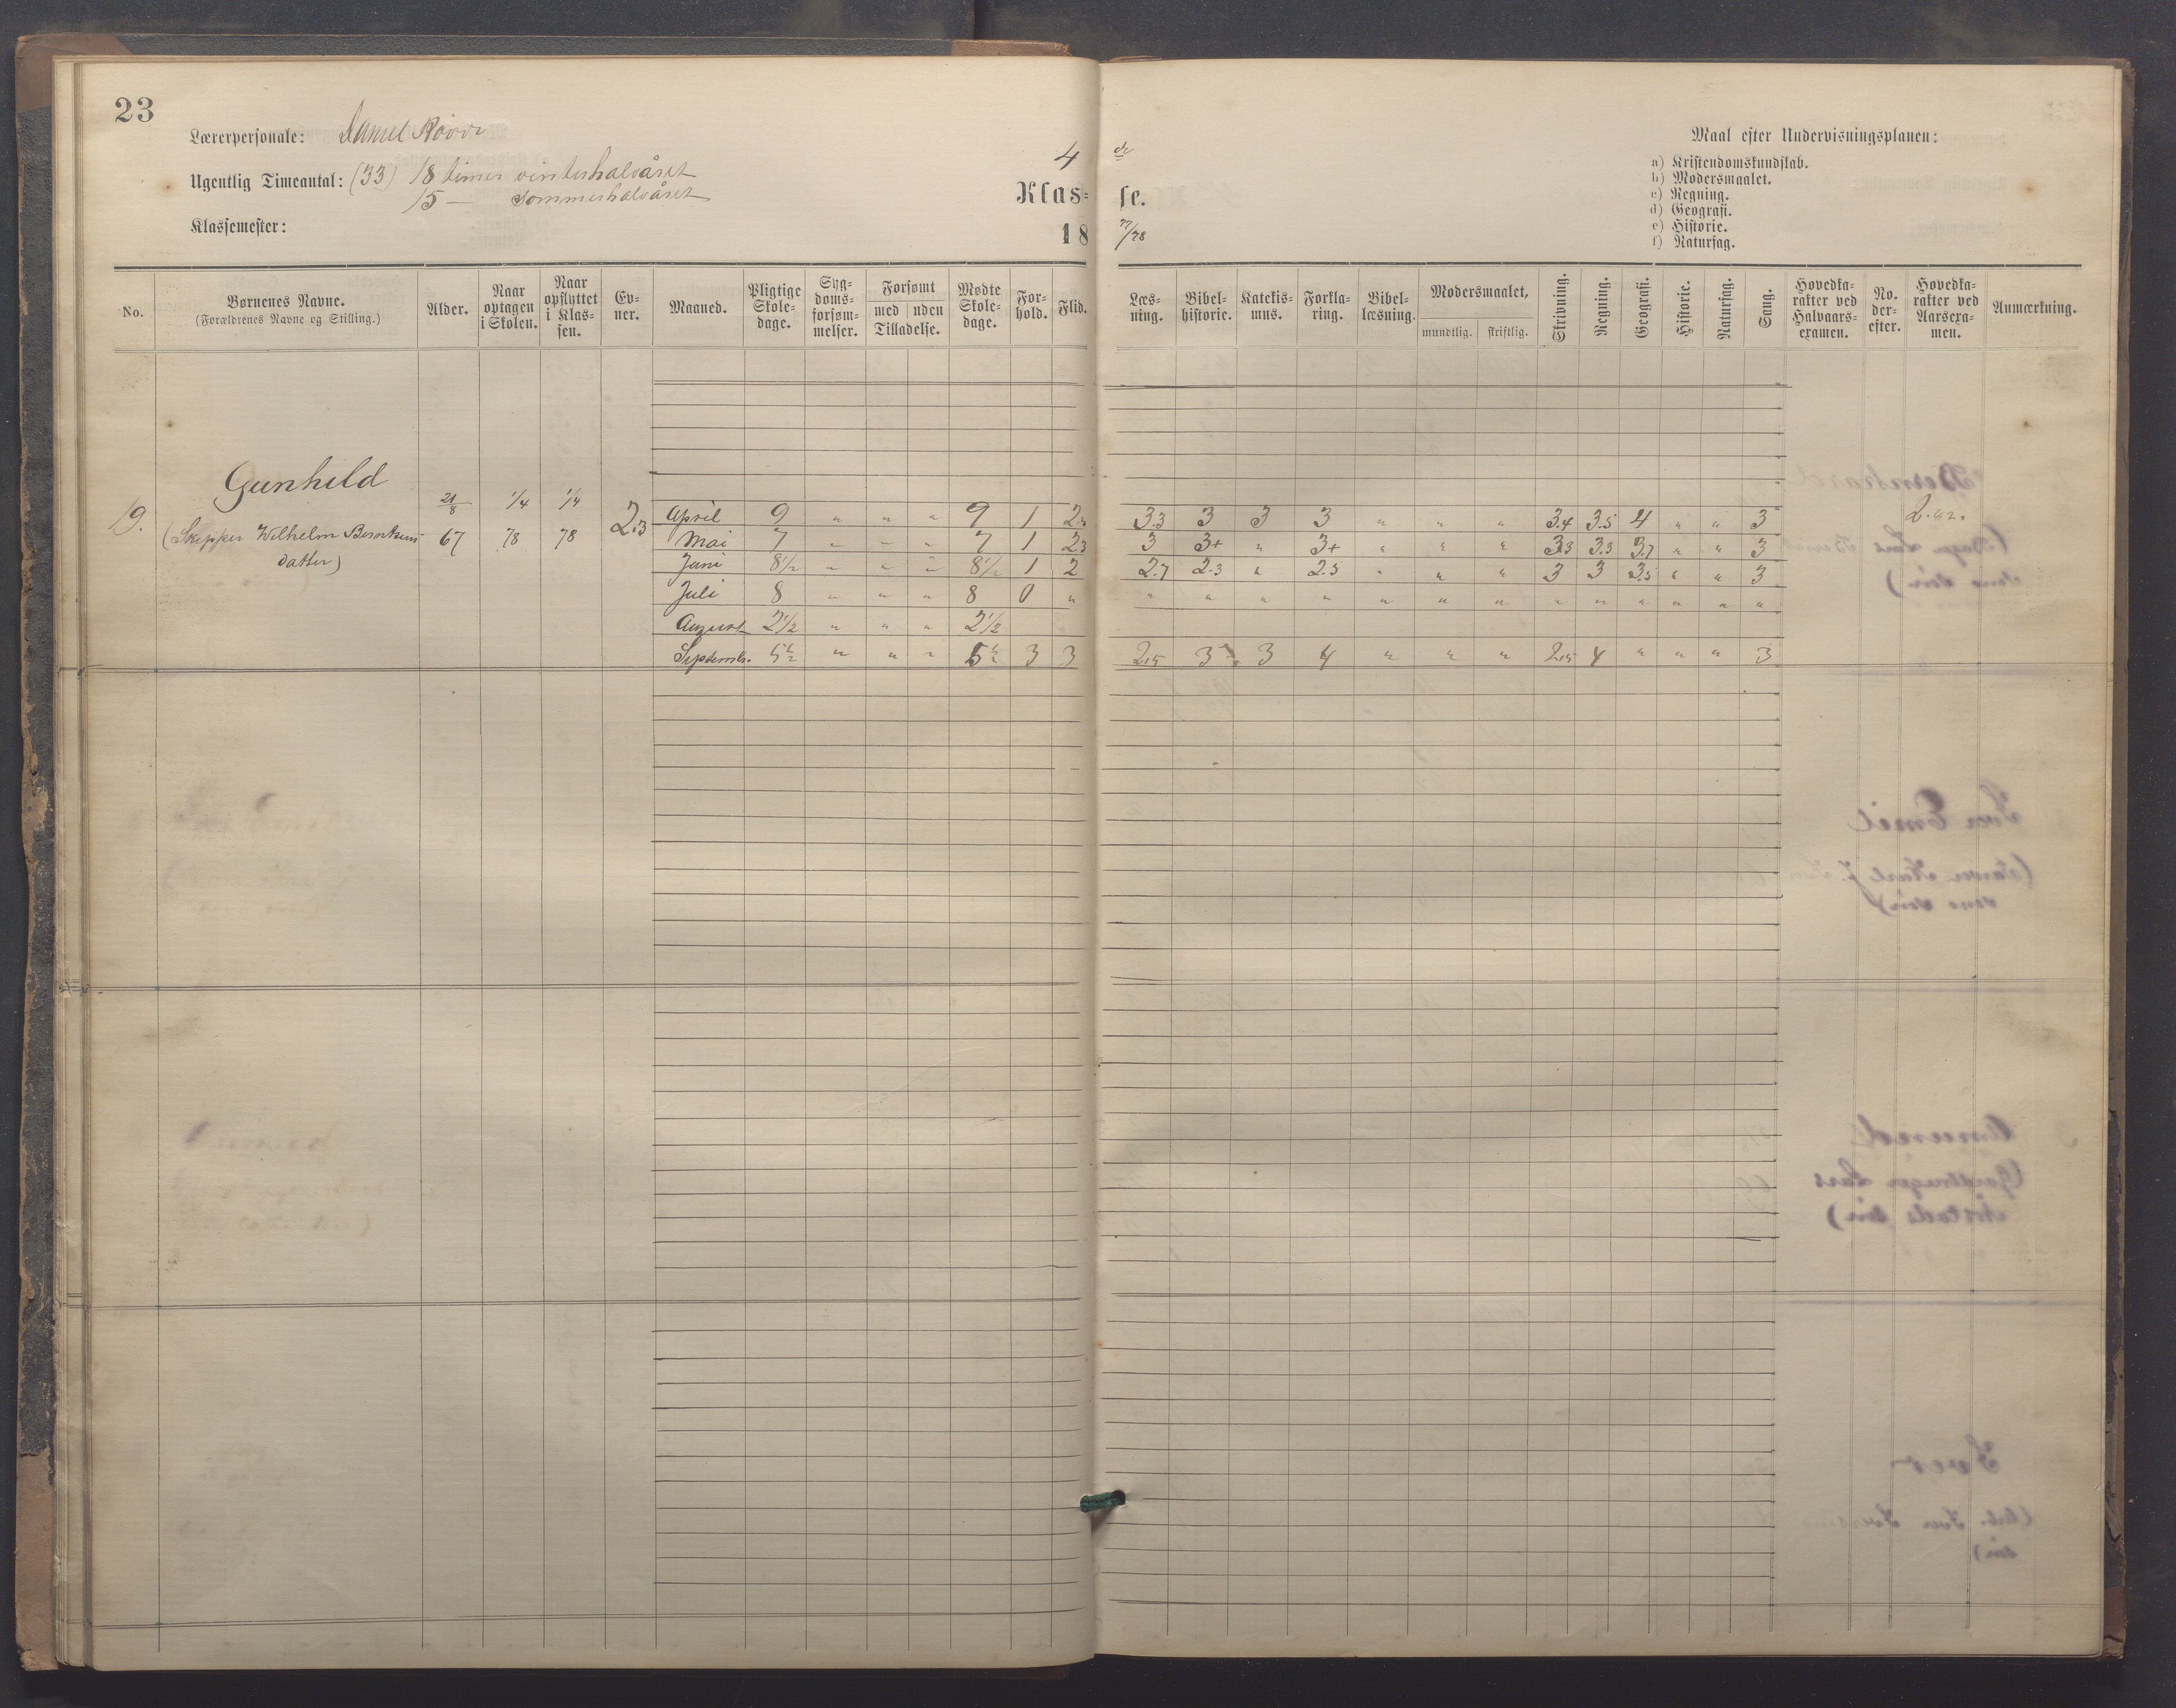 23
Lærerpersonale: Daniel
Ugentlig Timeantal: (33) 18 timer vinterhalvåret
15 — Sommerhalvåret
Klassemester:
4 de
Klasse.
18 77/78
Maal efter Undervisningsplanen:
a) Kristendomskundskab.
b) Modersmaalet.
c) Regning.
d) Geografi.
e) Historie.
f) Naturfag.
No. Børnenes Navne. (Forældrenes Navne og Stilling.) Alder. Naar optagen i Skolen. Naar opflyttet i Klassen. Evner. Maaned. Pligtige Skoledage. Sygdomsforsømmelser. Forsømt med uden Tilladelse. Mødte Skoledage. Forhold. Flid. Læsning. Bibelhistorie. Katekismus. Forklaring. Bibellæsning. Modersmaalet, mundtlig. skriftlig. Skrivning. Regning. Geografi. Historie. Naturfag. Sang. Hovedkarakter ved Halvaarsexamen. No. derefter. Hovedkarakter ved Aarsexamen. Anmærkning.
Gunhild
19. (Skipper Wilhelm
datter)
21/8 67 1/4 78 1/4 78 2.3
April 9 " " " 9 1 2.3 3.3 3 3 3 " " " 3.4 3.5 4 " " 3
Mai 7 " " " 7 1 2.3 3 3+ " 3+ " " " 3.3 3.3 3.7 " " 3
Juni 8 1/2 " " " 8 1/2 1 2 2.7 2.3 " 2.5 " " " 3 3 3.5 " " 3
Juli 8 " " " 8 0 " " " " " " " " " " " " " "
August 2 1/2 " " " 2 1/2
Septemb. 5 1/2 " " " 5 1/2 3 3 2.15 3 3 4 " " " 2.15 4 " " " 3